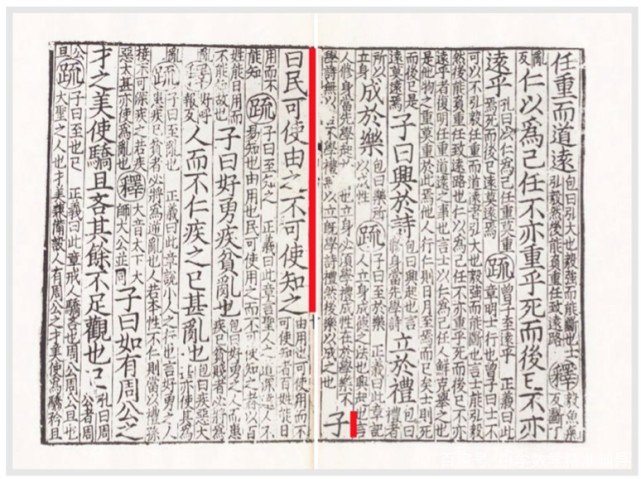 任重而道遠 包曰弘大也毅強而能斷也士弘毅然後能負重任致遠路 釋 毅魚氣反斷丁
亂反 仁以為己任不亦重乎死而後已不亦
遠乎 孔曰以仁為己任重莫重焉死而後已遠莫遠焉 疏 曾子至遠乎 正義曰此章明士行也曾子曰士不
可以不弘毅任重而道遠者弘大也毅強而能斷也言士能弘毅然後能負重任致遠路也仁以為己任不亦重乎死而後已不亦
遠乎者復明任重道遠之事也言仁以為己任人鮮克舉之也是他物之重莫重於此焉他人行仁則日月至焉而已矣士則死
而後已是遠莫遠焉 子曰興於詩 包曰興起也言脩身當先學詩 立於禮 包曰禮者
所以立身 成於樂 包曰樂所以成性 疏 子曰至於樂 正義曰此章記人立身成德之法也興起也言
人修身當先學 也立身必須學禮成性在於學樂不學詩無以言不學禮無以立既學詩禮然後樂以成之也 子
曰民可使由之不可使知之 由用也可使用而不可使知者百姓能日
用而不能知 疏 子曰至知之 正義曰此章言聖人之道深遠人不易知也由用也民可使用之而不可使知之者以百
姓能日用而不能知故也 子曰好勇疾貧亂也 包曰好勇之人而患疾己貧賤者必將為
亂 釋 好呼報反 人而不仁疾之已甚亂也 包曰疾惡大甚亦使其為
亂 疏 子曰至亂也 正義曰此章說小人之行也言好勇之人患疾己貧者必將為逆亂也人若本性不仁則當以禮孫
接不可深疾之若疾惡太甚亦使為亂也 釋 大音太下大師大公並同 子曰如有周公之
才之美使驕且吝其餘不足觀也已 孔曰周公者周
公旦 疏 子曰至也已 正義曰此章戒人驕吝也周公周公旦也大聖之人也才美兼備設人有周公之才美使為驕矜且